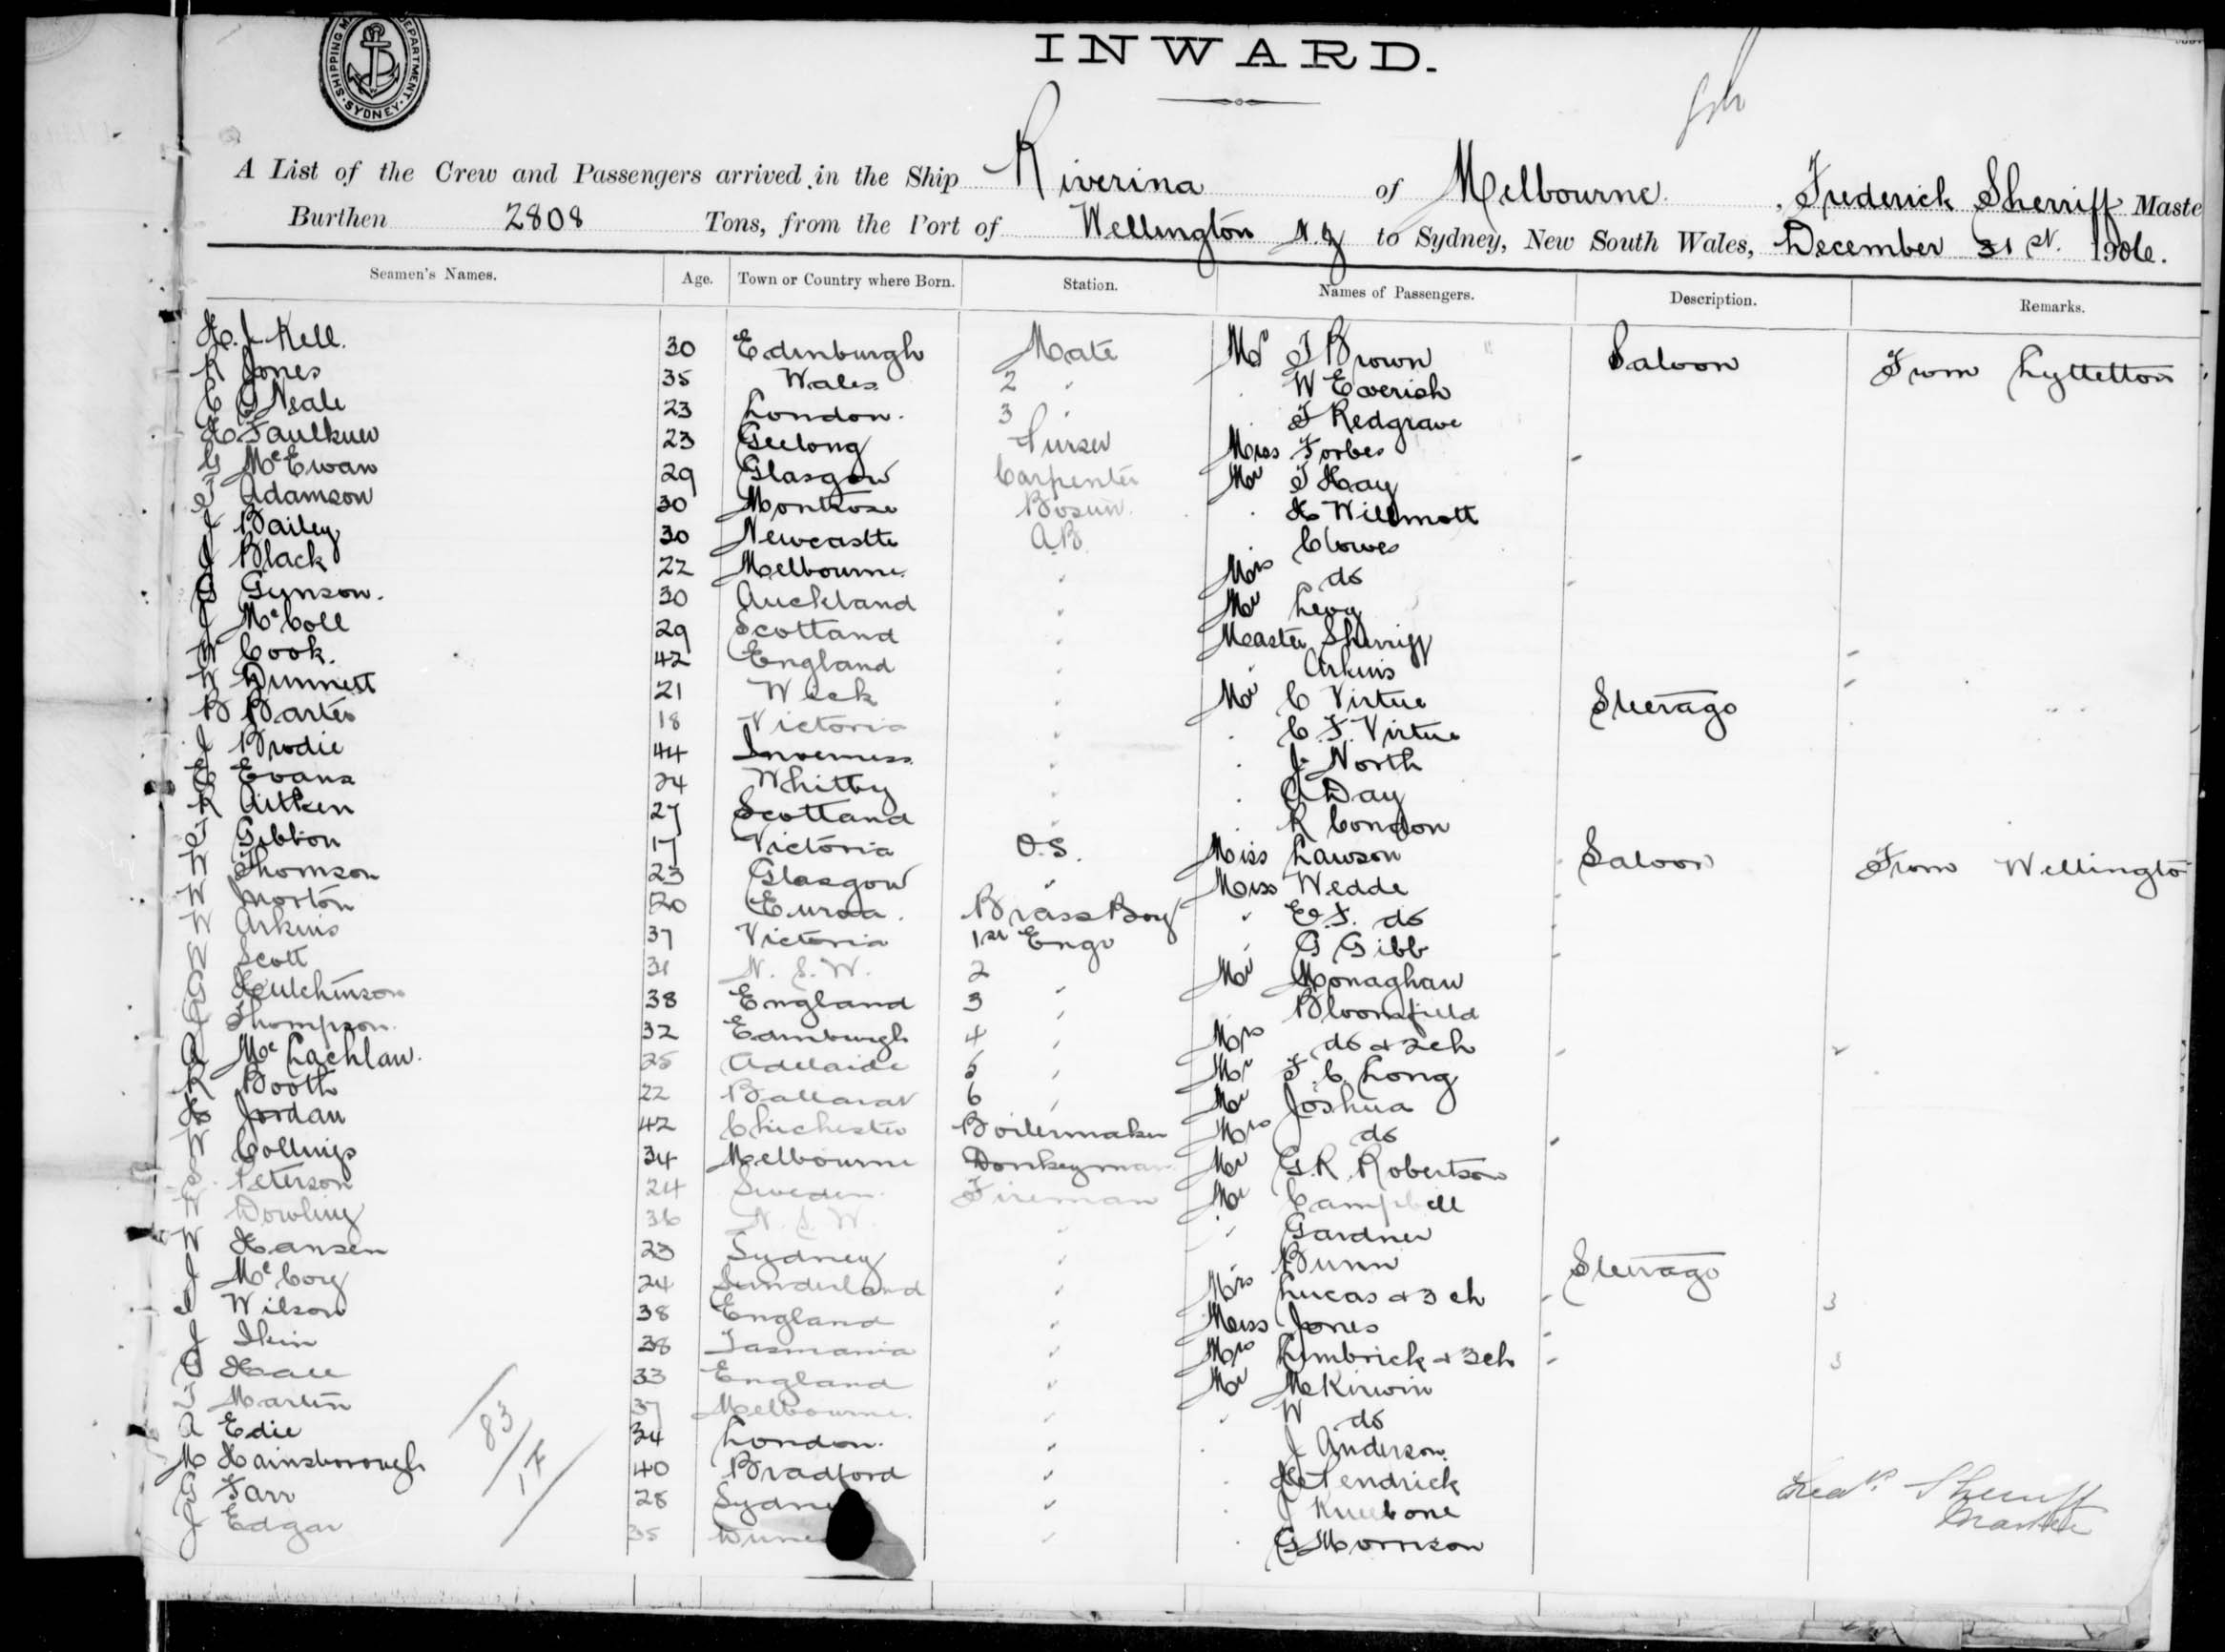 SHIPPING MA DEPARTMENT. SYDNEY.
INWARD.
A List of the Crew and Passengers arrived in the Ship Riverina of Melbourne. , Frederick Sherriff Maste
Burthen 2808 Tons, from the Port of Wellington N Z to Sydney, New South Wales, December 31 st. 1906.
Seamen's Names. Age. Town or Country where Born. Station. Names of Passengers. Description. Remarks.
H. J. Kell. 30 Edinburgh Mate Mr J Brown Saloon From Lyttelton
R Jones 35 Wales 2 " W Everish
C O Neale 23 London. 3 " T Redgrave
H Faulkner 23 Geelong Purser Miss Forbes
G McEwan 29 Glasgow Carpenter Mr T Hay
T Adamson 30 Montrose Bosun. H Willmott
J Bailey 30 Newcastle A.B. Clowes
J Black 22 Melbourne " Mrs do
O Gunson. 30 Auckland " Mr Levy
J McColl 29 Scotland " Master Sherriff
W Cook. 42 England " Arkins
W Dunnett 21 Wick " Mr C Virtue Steerage
B Bartes 18 Victoria " C. F. Virtue
J Brodie 44 Inverness " J. North
E Evans 24 Whitby " A Day
R Aitken 27 Scotland " R Condon
T Gibbon 17 Victoria O.S. Miss Lawson Saloon From Wellingto
W Thomson 23 Glasgow " Miss Wedde
W Morton 20 Euroa. Brass Boy " E. F. do
W Arkins 37 Victoria 1st Engr " G Gibb
E Scott 31 N. S. W. 2 " Mr Monaghan
G Hutchinson 38 England 3 " Bloomfield
J Thompson. 32 Edinburgh 4 " Mrs do & 2 ch
A McLachlan. 25 Adelaide 5 " Mr F. C. Long
R Booth 22 Ballarat 6 " Mr Joshua
H Jordan 42 Chichester Boilermaker Mrs do
W Collings 34 Melbourne Donkeyman Mr G. R. Robertson
S. Peterson 24 Sweden. Fireman Mr Campbell
W Dowling 36 N. S. W. " " Gardner
W Hansen 23 Sydney " Bunn Steerage
J McCoy 24 Sunderland " Mrs Lucas & 3 ch 3
J Wilson 38 England " Miss Jones
J Ikin 38 Tasmania " Mrs Limbrick & 3 ch 3
G Hall 33 England " Mr McKirwin
T Martin 37 Melbourne. " " W do
A Edie 34 London. " J Anderson.
M Hainsborough 40 Bradford " H Pendrick
G Farr 28 Sydney " J Kneebone
J Edgar 35 Dune " G Morrison
83
1 F
Fredk. Sherriff
Master